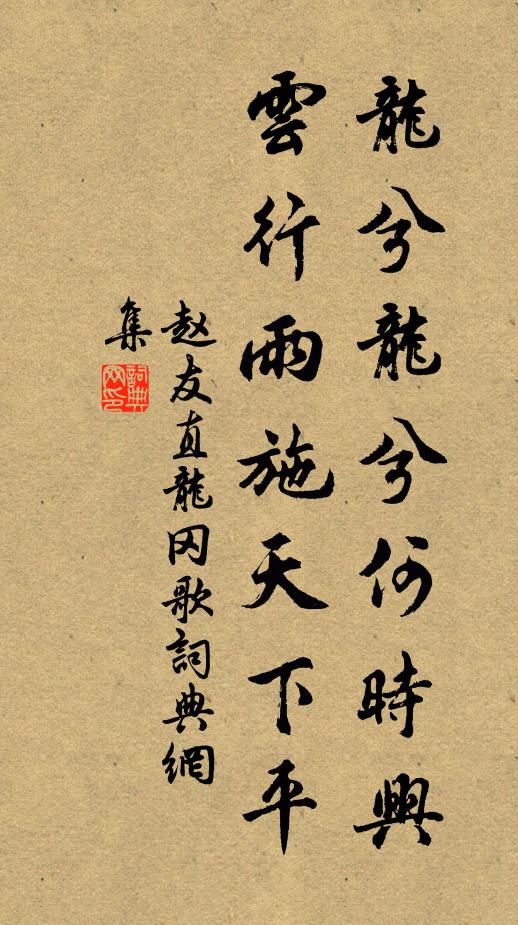 龍兮龍兮何時興
雲行雨施天下平
赵友直龍冈歌詞典網
集
詞典
网印